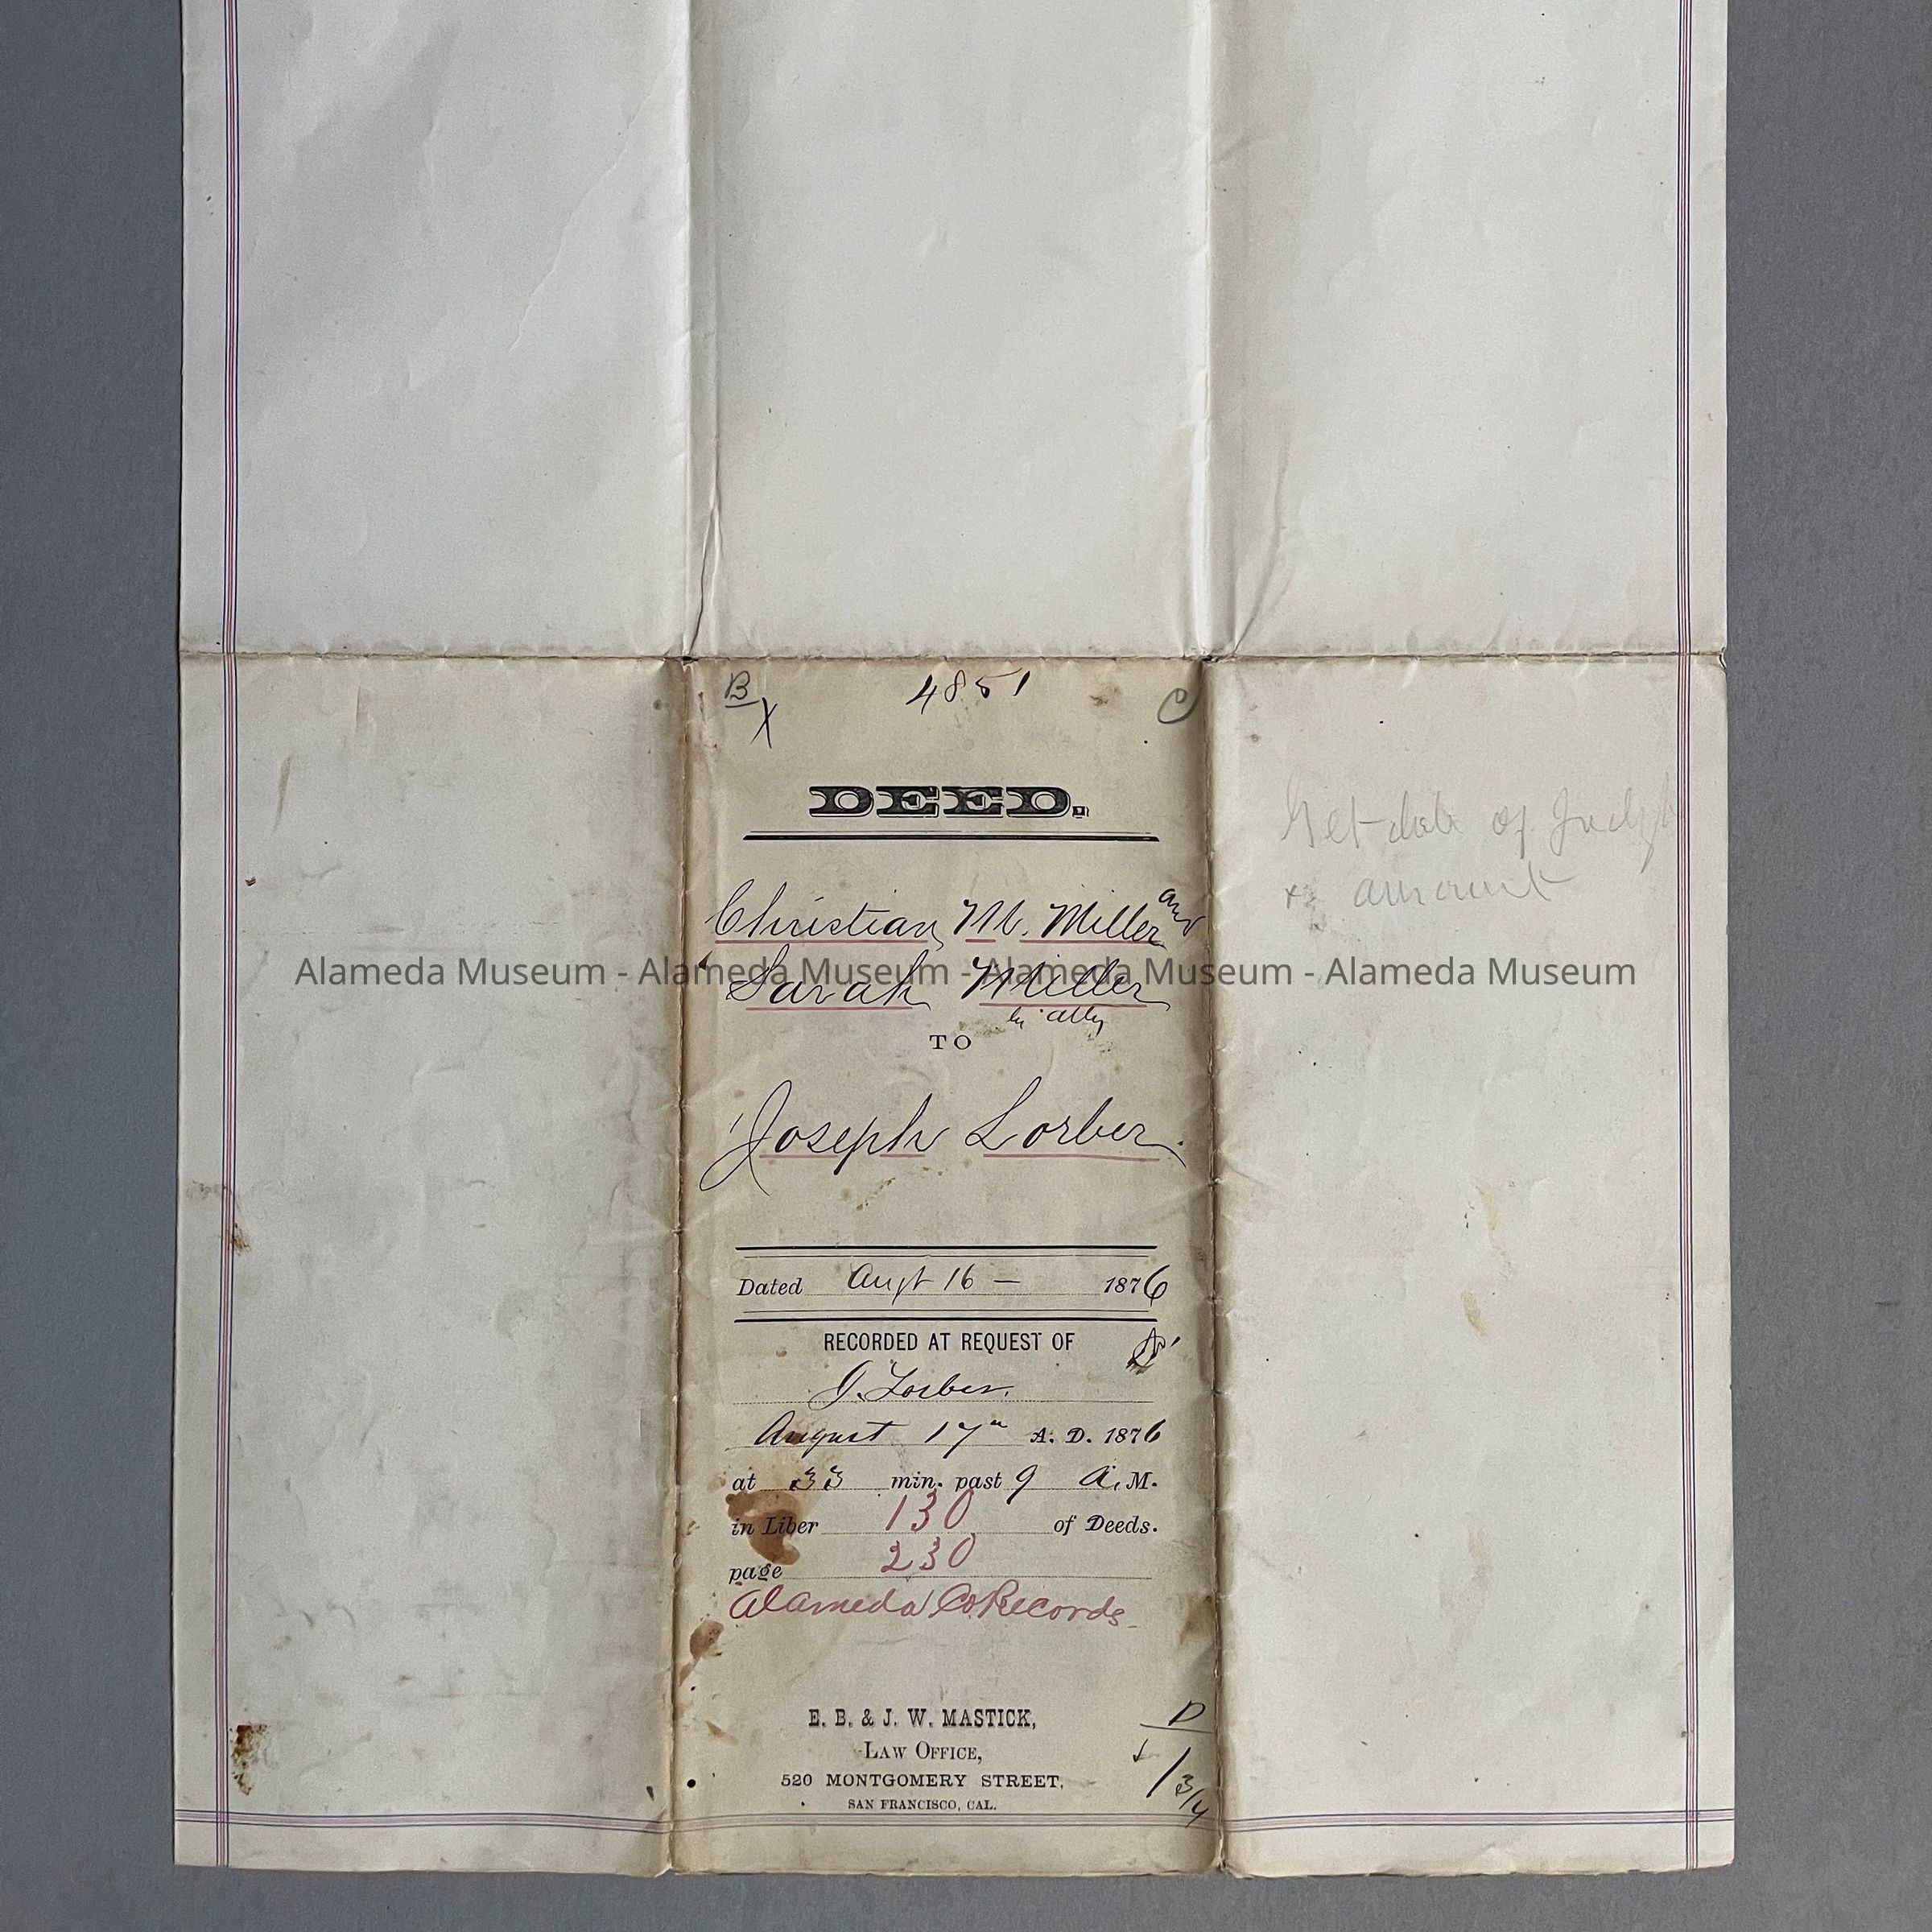 B
4851
C
X
DEED.
Christian M. Miller and
Sarah Miller
by atty
TO
Joseph Lorber.
Dated Augt 16 — 1876
RECORDED AT REQUEST OF
J. Lorber.
August 17th A. D. 1876
at 33 min. past 9 A. M.
in Liber 130 of Deeds.
page 230
Alameda Co Records.
E. B. & J. W. MASTICK,
LAW OFFICE,
520 MONTGOMERY STREET,
SAN FRANCISCO, CAL.
D
1 3/4
Get date of
& amount
Alameda Museum - Alameda Museum - Alameda Museum - Alameda Museum